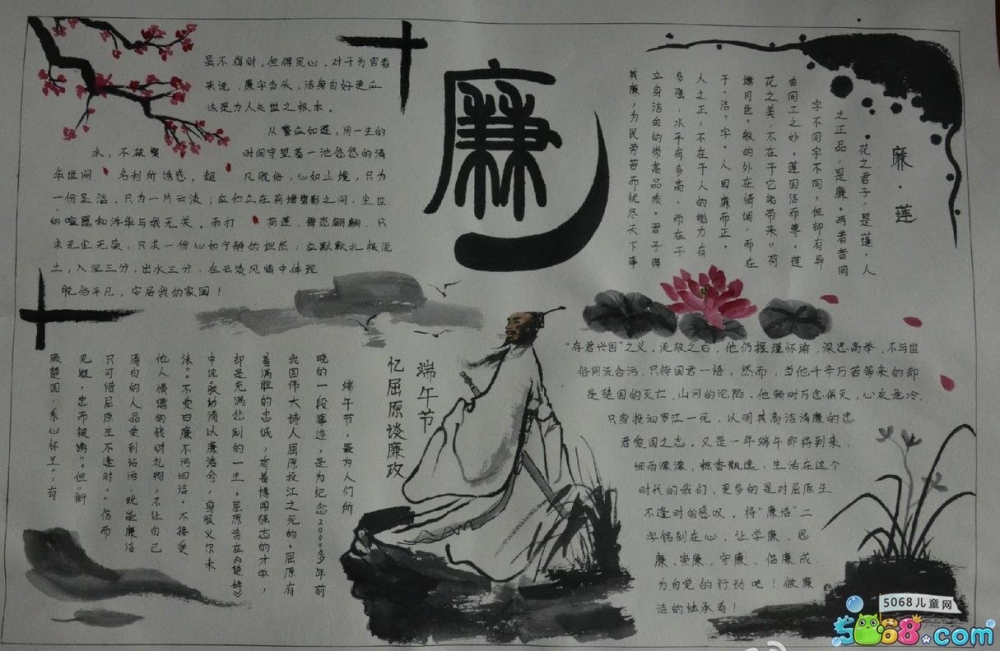 廉
虽不得时，但得民心，对于为官者
来说，廉字当头，洁身自好更应
该是为人处世之根本。
从繁至如莲，用一生的
水，不被繁
时间守望着一池悠悠的清
华世间
名利所诱惑，超
凡脱俗，心如止境，只为
一份圣洁，只为一片云淡；
荷塘
影之间，尘世
的喧嚣和浮华与我无关，而打
荷莲，舞态翩翩，只
求无尘无染，只求一份心如宁静的坦然；
默默扎根泥
土，入泥三分，出水三分，在云淡风情中体现
脱俗平凡，安居我的家园！
廉·莲
·花之君子，是莲，人
之正品，是廉，两者看同
字不同字不同，但却有异
曲同工之妙。莲因洁而尊，莲
花之美，不在于它能带来“荷
塘月色”般的外在情调，而在
于“洁”字。人因廉而正。
人之正，不在于人的能力有
多强，水平有多高，而在于
立身洁白的崇高品质。君子得
其廉，为民劳苦而优尽天下事
端午节
忆屈原谈廉政
端午节，最为人们所
晓的一段事迹，是为纪念2000多年前
我国伟大诗人屈原投江之死的。屈原有
着满腔的忠诚，有着博闻强志的才华，
却是充满悲剧的一生。屈原曾在《楚辞》
中说“朕幼清以廉洁兮，身服义尔未
沫”“不受曰廉不污曰洁”不接受
他人馈赠的钱财礼物，不让自己
清白的人品受到玷污，就是廉洁
只可惜屈原生不逢时，“信而
见疑，忠而被谤”但“眷
顾楚国，系心怀王”，有
“存君兴国”之义，流放之后，他仍握瑾怀瑜，深思高举，不与世
俗同流合污，只待国君一悟，然而，当他千辛万苦等来的却
是楚国的灭亡，山河的沦陷，他顿时万念俱灭，心灰意冷，
只身投汨罗江一死，以明其高洁清廉的忠
君爱国之志。又是一年端午即将到来，
细雨濛濛，粽香飘逸，生活在这个
时代的我们，更多的是对屈原生
不逢时的感叹。将“廉洁”二
字铭刻在心，让学廉、思
廉、崇廉、守廉、倡廉成
为自觉的行动吧！做廉
洁的继承者！
5068儿童网
5068.com